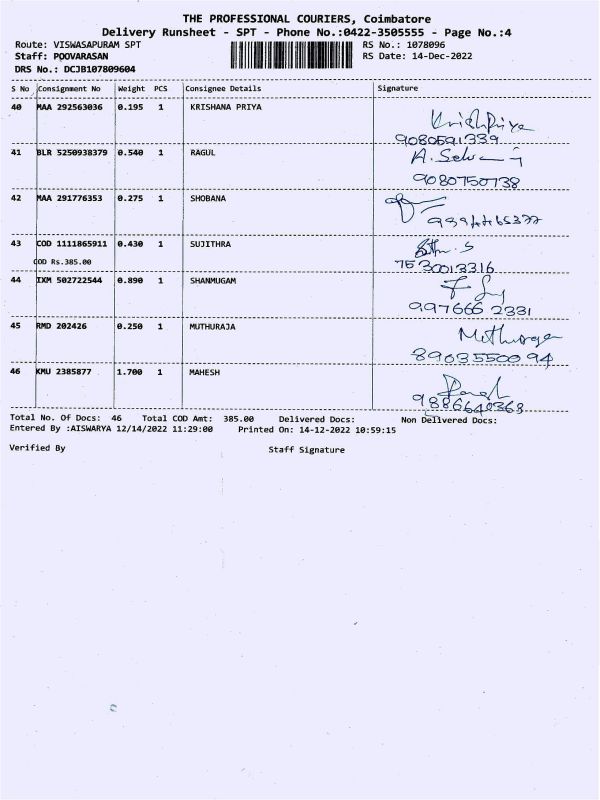 THE PROFESSIONAL COURIERS, Coimbatore
Delivery Runsheet - SPT - Phone No.:0422-3505555 - Page No.:4
Route: VISWASAPURAM SPT RS No.: 1078096
Staff: POOVARASAN RS Date: 14-Dec-2022
DRS No.: DCJB107809604
S No Consignment No Weight PCS Consignee Details Signature
40 MAA 292563036 0.195 1 KRISHANA PRIYA KrishPriya
9080591339
41 BLR 5250938379 0.540 1 RAGUL A. Selva
9080750738
42 MAA 291776353 0.275 1 SHOBANA
43 COD 1111865911 0.430 1 SUJITHRA
COD Rs.385.00 7530013316
44 IXM 502722544 0.890 1 SHANMUGAM
997666 2331
45 RMD 202426 0.250 1 MUTHURAJA
8903550094
46 KMU 2385877 1.700 1 MAHESH
9886640368
Total No. Of Docs: 46 Total COD Amt: 385.00 Delivered Docs: Non Delivered Docs:
Entered By :AISWARYA 12/14/2022 11:29:00 Printed On: 14-12-2022 10:59:15
Verified By Staff Signature